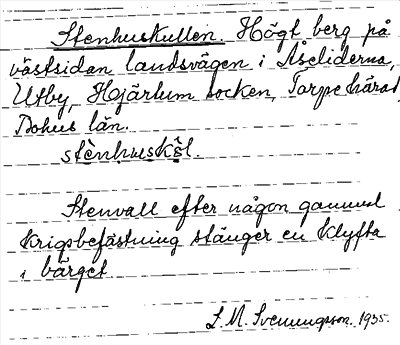 Stenhuskullen. Högt berg på
västsidan landsvägen i Åseliderna,
Utby, Hjärtum socken, Torpe härad
Bohus län.
stènhuskẹ̀l.
Stenvall efter någon gammal
krigsbefästning stänger en klyfta
i bärget.
L. M. Svenungsson. 1935.